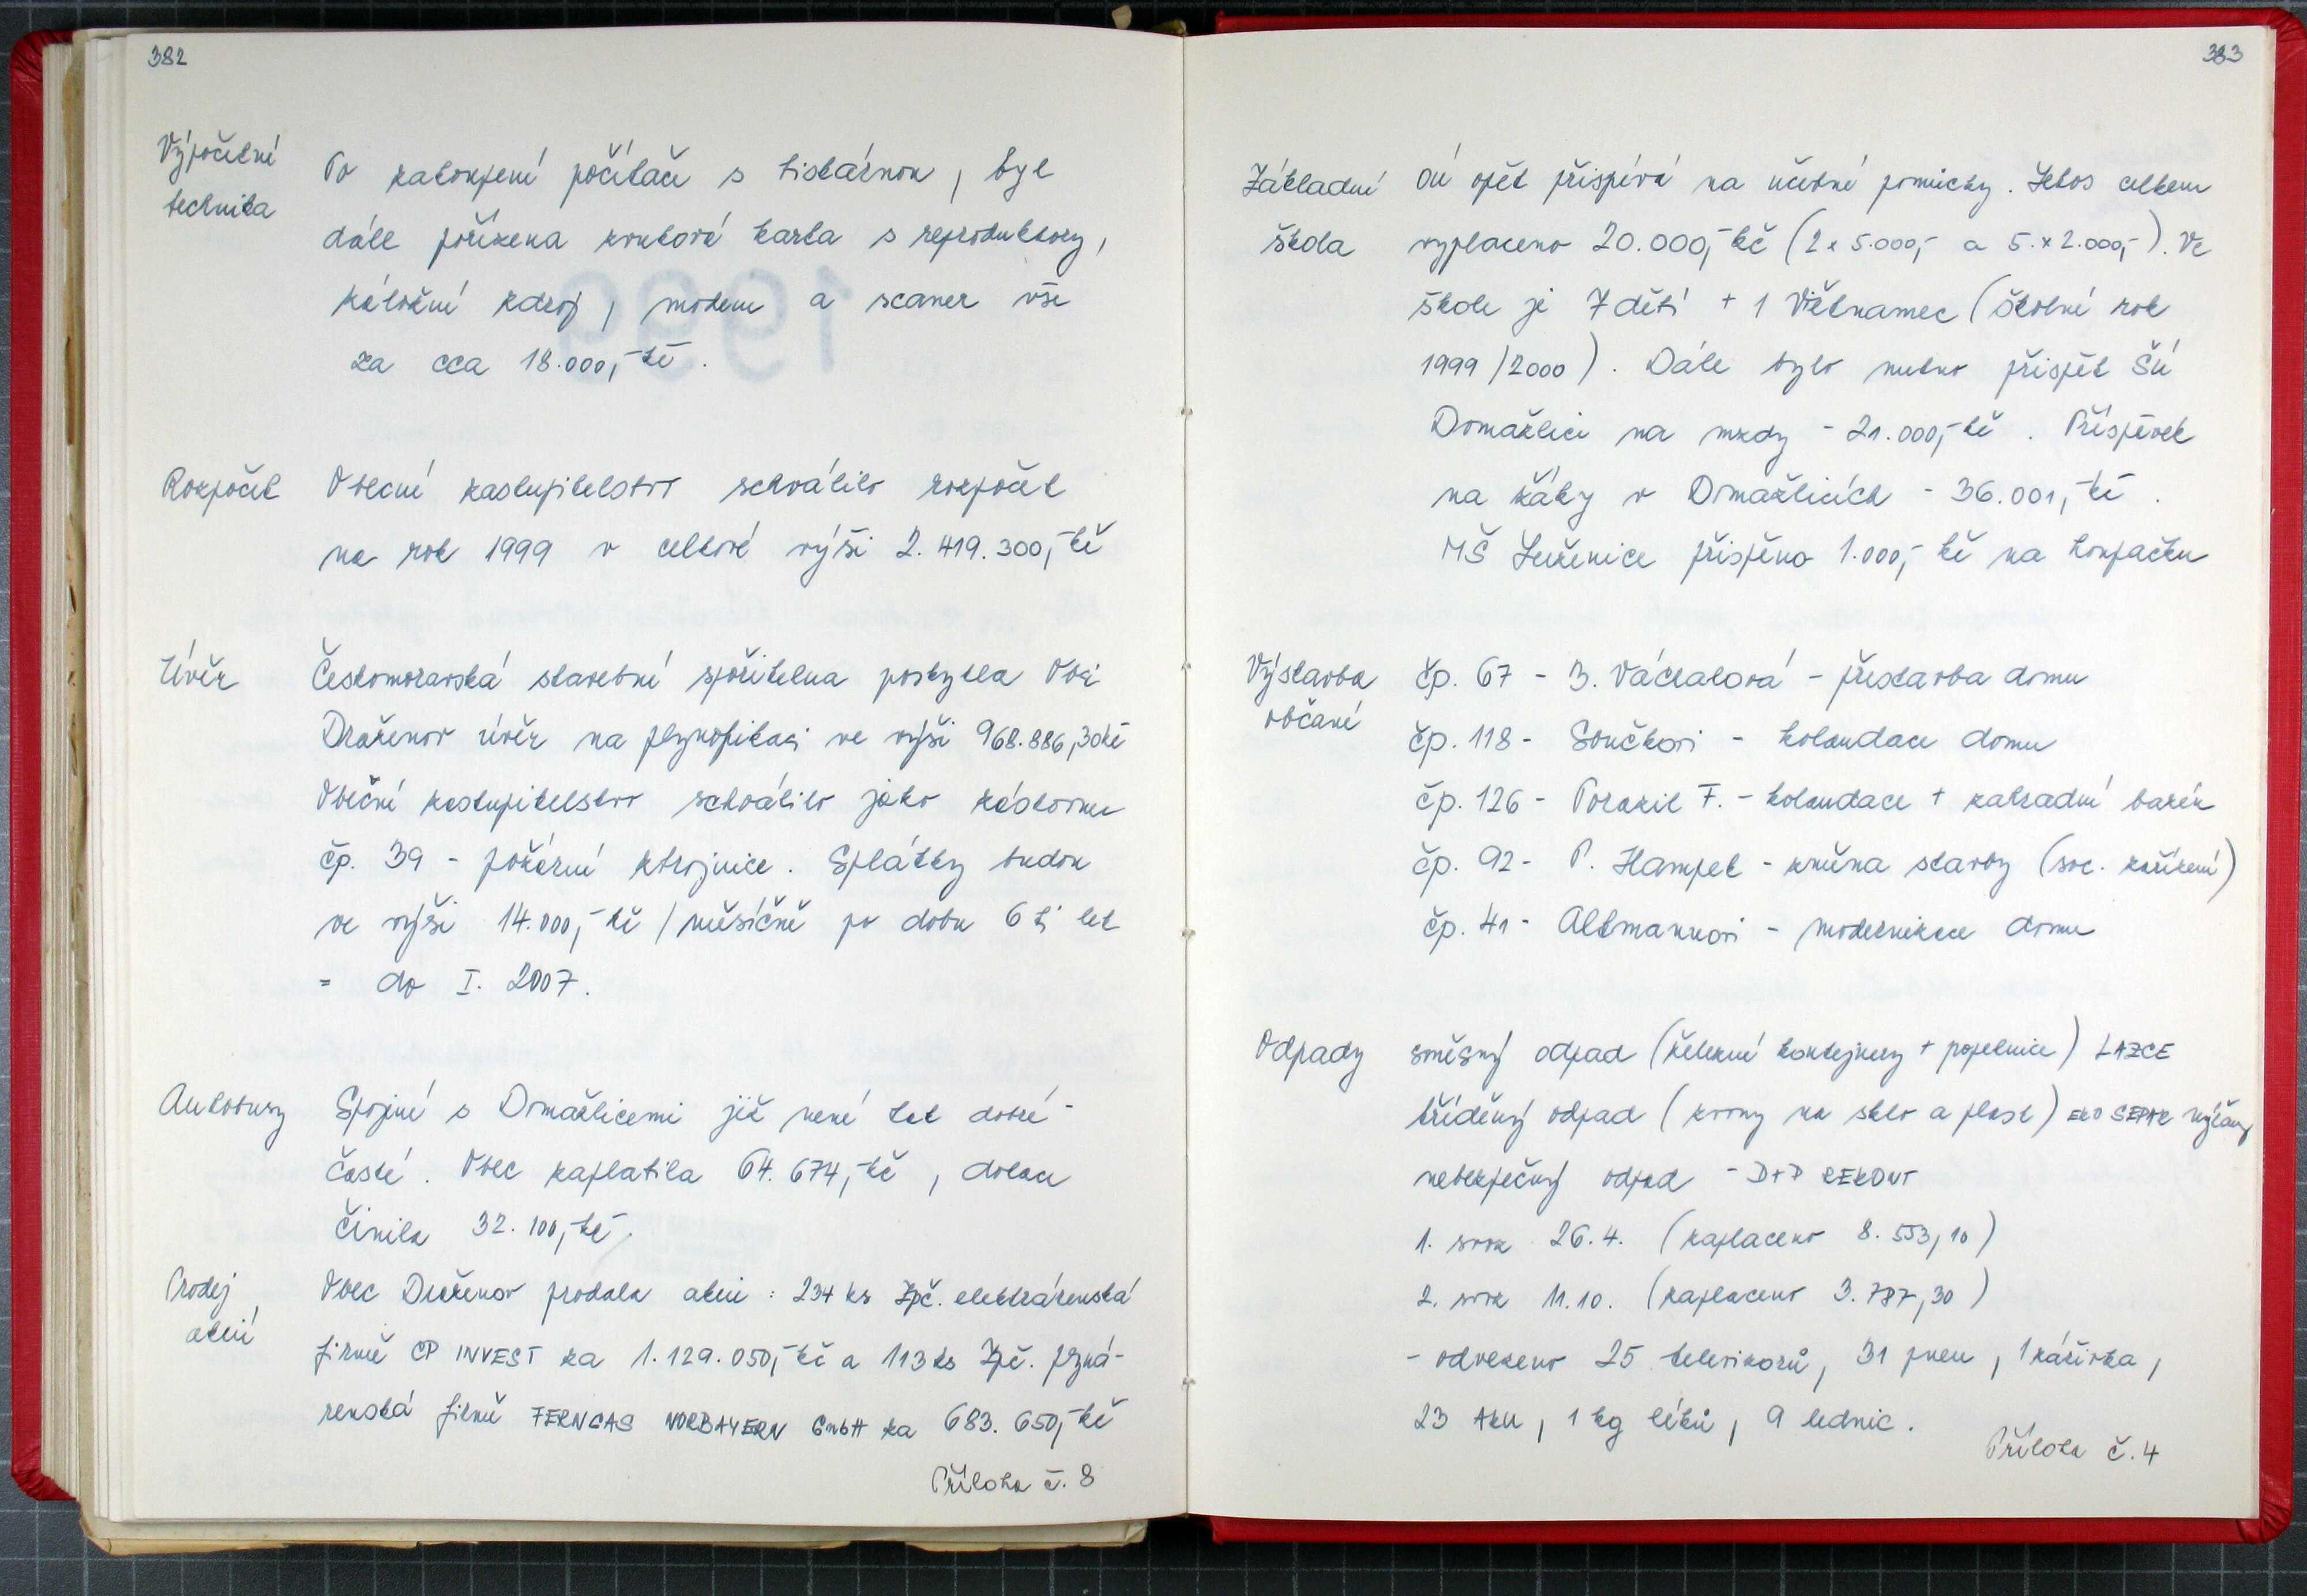 382
Výpočetní
technika
Po zakoupení počítače s tiskárnou, byl
dále pořízena zvuková karta s reproduktory,
záložní zdroj, modem a scaner vše
za cca 18.000,- Kč.
Rozpočet
Obecní zastupitelstvo schválilo rozpočet
na rok 1999 v celkové výši 2.419.300,- Kč
Úvěr
Českomoravská stavební spořitelna poskytla Obci
Draženov úvěr na plynofikaci ve výši 968.886,30 Kč
Obeční zastupitelstvo schválilo jako zástavu
čp. 39 - požární zbrojnice. Splátky budou
ve výši 14.000,- Kč / měsíčně po dobu 6 ti let
= do I. 2007.
Autobusy
Spojení s Domažlicemi již není tak dobré -
časté. Obec zaplatila 64.674,- Kč, dotace
činila 32.100,- Kč.
Prodej
akcií
Obec Draženov prodala akcie: 234 ks Zpč. elektrárenská
firmě CP INVEST za 1.129.050,- Kč a 113 ks Zpč. plyná-
renská firmě FERNGAS NORBAYERN GmbH za 683.650,- Kč
Příloha č. 8
383
Základní
škola
OÚ opět přispívá na učební pomůcky. Letos celkem
vyplaceno 20.000,- Kč (2 x 5.000,- a 5.x 2.000,-). Ve
škole je 7 dětí + 1 Viětnamec (školní rok
1999/2000). Dále bylo nutno přispět ŠÚ
Domažlice na mzdy - 21.000,- Kč. Příspěvek
na žáky v Domažlicích - 36.001,- Kč.
MŠ Luženice přispěno 1.000,- Kč na houpačku
Výstavba
občané
čp. 67 - B. Váchalová - přestavba domu
čp. 118 - Součkovi - kolaudace domu
čp. 126 - Pozakil F. - kolaudace + zahradní bazén
čp. 92 - P. Hampel - změna stavby (soc. zařízení)
čp. 41 - Altmannovi - modernizace domu
Odpady
směsný odpad (železné kontejnery + popelnice) LAZCE
tříděný odpad (zvony na sklo a plast) EKO SEPAR
nebezpečný odpad - D+P REKONT
1. svoz 26.4. (zaplaceno 8.553,10)
2. svoz 11.10. (zaplaceno 3.787,30)
- odvezeno 25 televizorů, 31 pneu, 1 zářivka,
23 AKU, 1 kg léků, 9 lednic.
Příloha č. 4